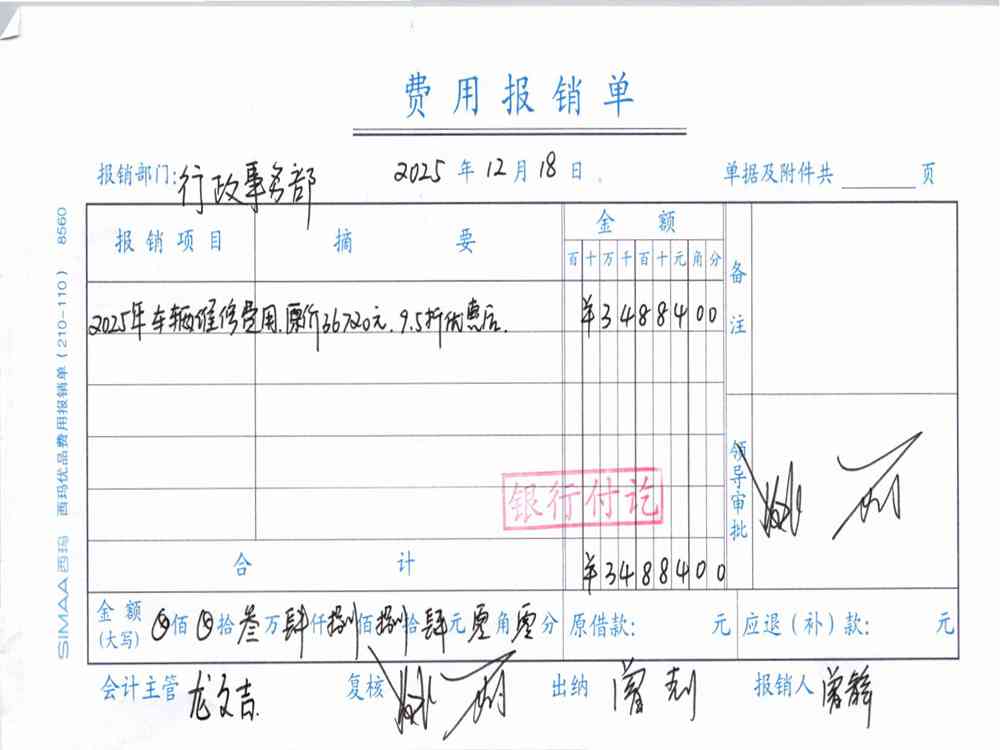 费用报销单
报销部门:行政事务部 2025年12月18日 单据及附件共 页
报销项目 摘要 金额 备注
百十万千百十元角分
2025年车辆维修费用,原价36720元,9.5折优惠后. ¥3488400
银行付讫
领导审批
合计 ¥3488400
金额(大写) 佰 拾叁万肆仟捌佰捌拾肆元零角零分 原借款: 元 应退(补)款: 元
会计主管 龙文吉 复核 出纳 报销人
SIMAA西玛 西玛优品费用报销单(210-110) 8560